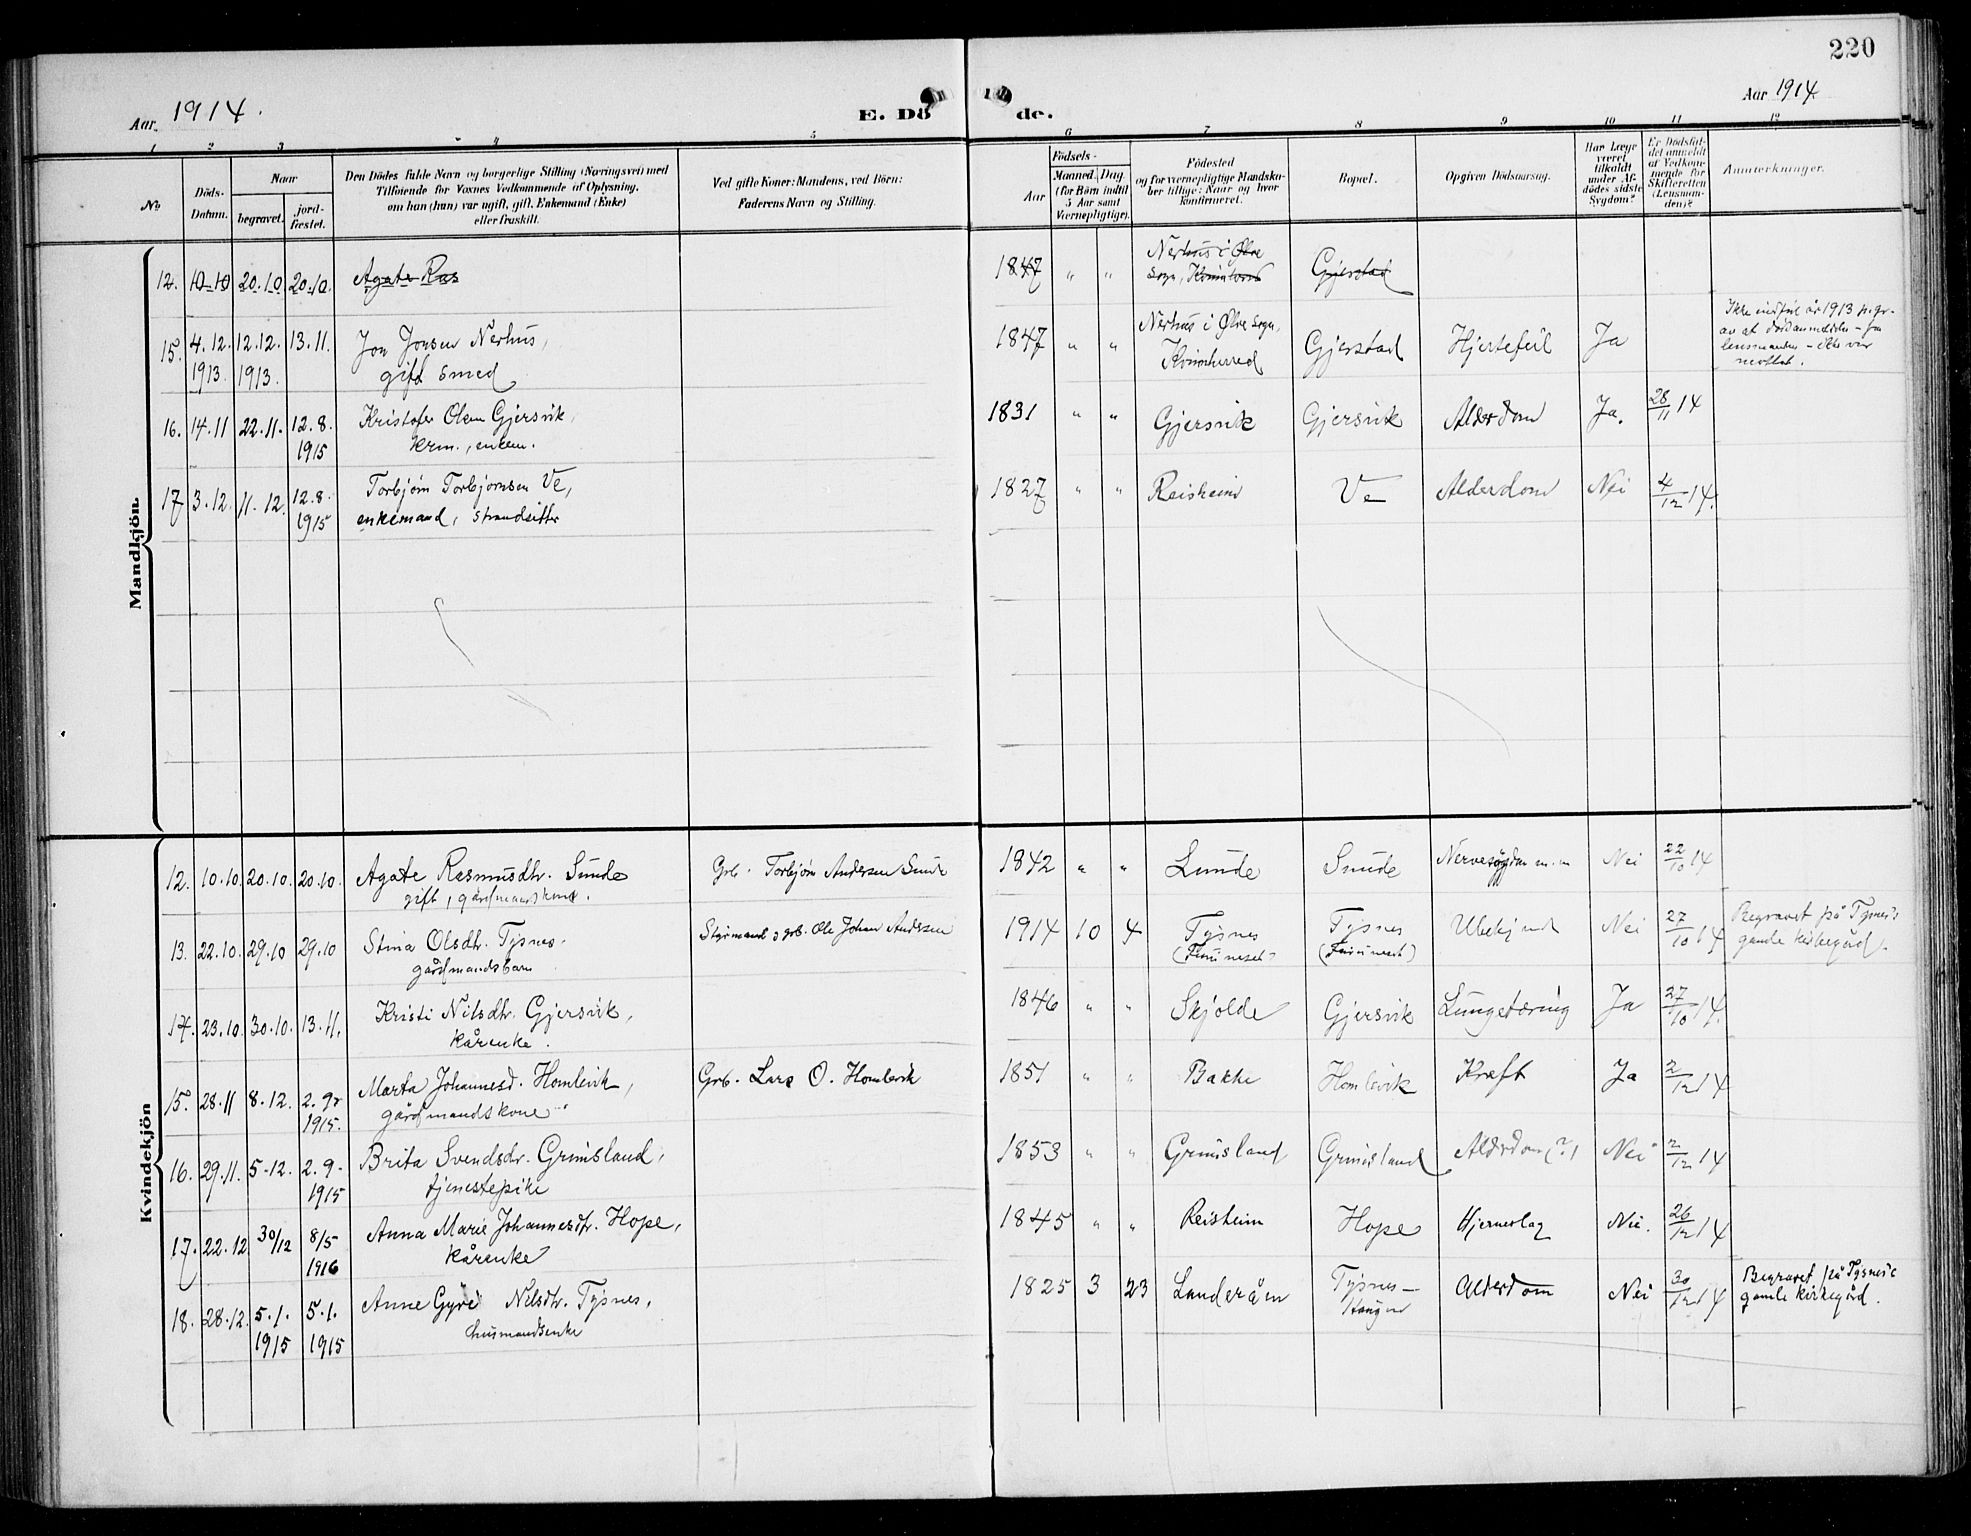 220
Aar 1914.
E. Dö de.
Aar 1914
1 2 3 4 5 6 7 8 9 10 11 12
No
Döds-Datum.
Naar
begravet.
jord-fæstet.
Den Dödes fulde Navn og borgerlige Stilling (Næringsvei) med
Tilföiende for Voxnes Vedkommende af Oplysning,
om han (hun) var ugift, gift, Enkemand (Enke)
eller fraskilt.
Ved gifte Koner: Mandens, ved Börn:
Faderens Navn og Stilling.
Födsels-
Aar
Maaned. Dag
(for Börn indtil
5 Aar samt
Værnepligtige).
Födested
og for værnepligtige Mandska-
ber tillige: Naar og hvor
konfirmeret.
Bopæl.
Opgiven Dödsaarsag.
Har Læge
været
tilkaldt
under Af-
dödes sidste
Sygdom?
Er Dödsfal-
det anmeldt
af Vedkom-
mende for
Skifteretten
(Lensman-
den)?
Anmerkninger.
Mandkjön.
12. 10-10 20.10 20.10. Agate Ras 1847 " " Nerhus i Ølve
Sogn, Gjerstad
15. 4.12. 12.12. 13.11. Jon Jonsen Nerhus, 1847 " " Nerhus i Ølve Sogn, Gjerstad Hjertefeil Ja
1913. 1913. gift smed
Ikke indført år 1913 p. gr.
av at
lensmanden - ikke var
mottat.
16. 14.11 22.11. 12.8. Kristofer Olsen Gjersvik, 1831 " " Gjersvik Gjersvik Alderdom Ja. 28/11 14
1915 krm., enkem.
17 3.12. 11.12. 12.8. Torbjørn Torbjørnsen Ve, 1827 " " Reisheim Ve Alderdom Nei 4/12 14.
1915 enkemand, strandsitter
Kvindekjön
12. 10.10. 20.10. 20.10. Agate Rasmusdtr. Sunde Grb. Torbjørn Andersen Sunde 1842 " " Lunde Sunde Nei 22/10 14
gift, gårdmandskone.
13. 22.10. 29.10 29.10 Stina Olsdtr. Tysnes. Styrmand og grb. Ole Johan Andersen 1914 10 4 Tysnes Tysnes Ubekjendt Nei 27/10 14 Begravet på Tysnes
gårdmandsbarn gamle kirkegård.
14. 23.10. 30.10. 13.11. Kristi Nilsdtr. Gjersvik, 1846 " " Skjolde Gjersvik Lungetæring Ja 27/10 14.
kårenke.
15. 28.11 8.12. 2.9. Marta Johannesd. Homlevik, Grb. Lars O. Homlevik 1851 " " Bakke Homlevik Kræft Ja 2/12 14
1915. gårdmandskone
16. 29.11. 5-12. 2.9- Brita Svendsdr. Grimsland, 1853 " " Grimsland Grimsland Alderdom (?) Nei 2/12 14
1915 tjenestepike
17. 22.12. 30/12 8/5 Anna Marie Johannesdtr. Hope, 1845 " " Reisheim Hope Hjerneslag Nei. 26/12 14
1916 kårenke
18. 28.12. 5.1. 5.1. Anne Gyri Nilsdtr. Tysnes, 1825 3 23 Landeråen Tysnes- Alderdom Nei 30/12 14 Begravet på Tysnes
1915 1915 husmandsenke Haugen gamle kirkegård.